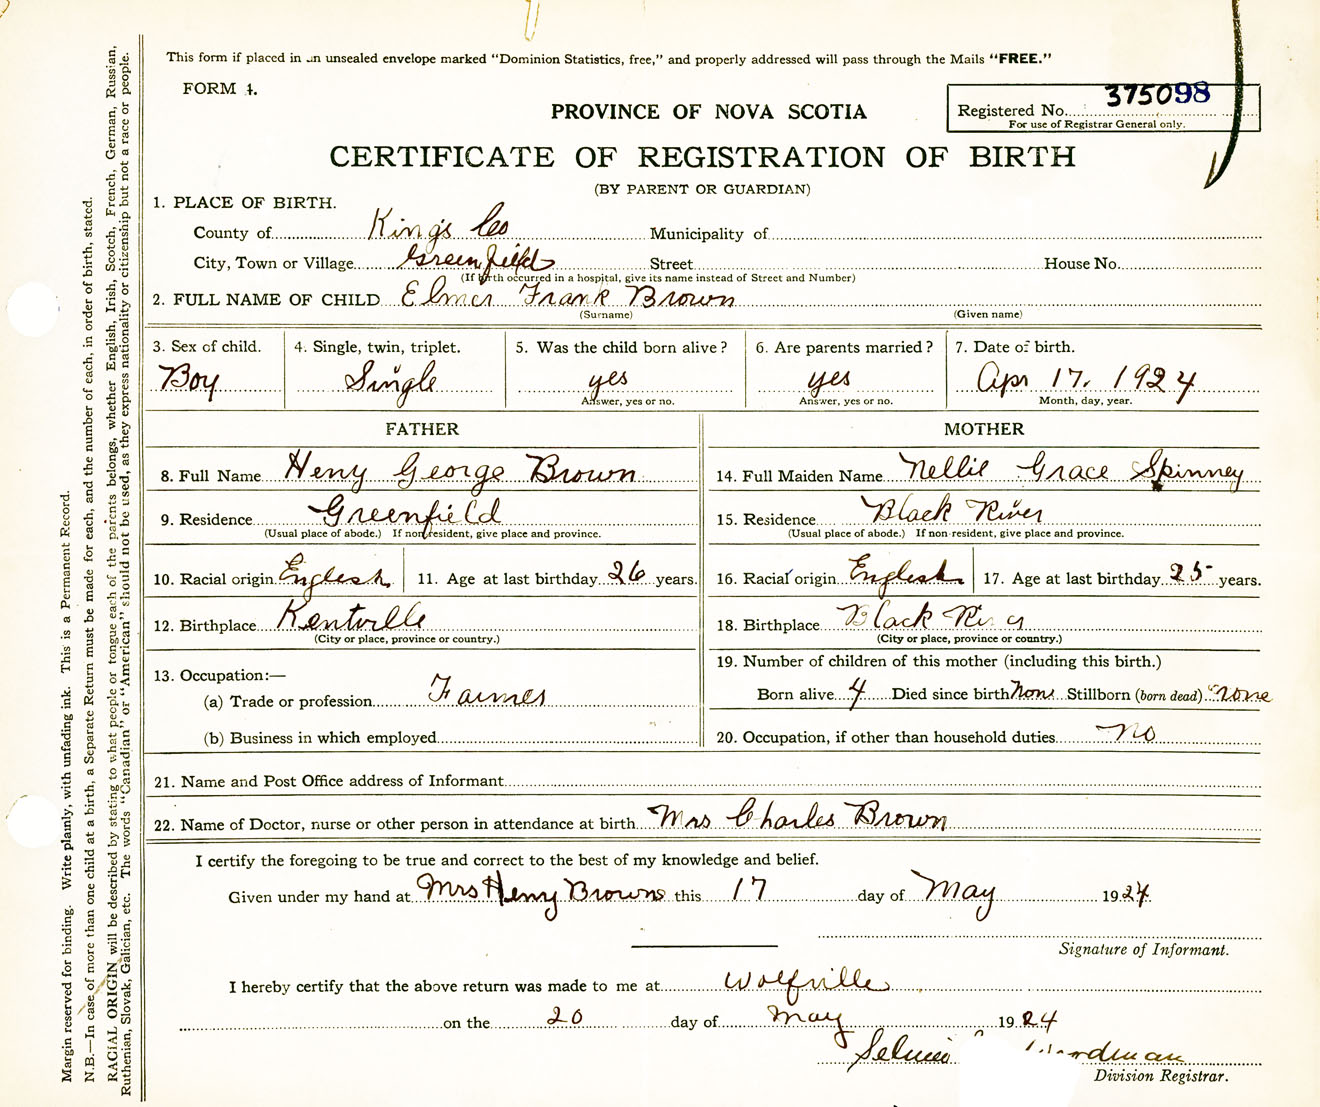 This form if placed in an unsealed envelope marked "Dominion Statistics, free," and properly addressed will pass through the Mails "FREE."
FORM 4.
PROVINCE OF NOVA SCOTIA
Registered No. 375098
For use of Registrar General only.
CERTIFICATE OF REGISTRATION OF BIRTH
(BY PARENT OR GUARDIAN)
1. PLACE OF BIRTH.
County of Kings Co Municipality of
City, Town or Village Greenfield Street House No.
(If birth occurred in a hospital, give its name instead of Street and Number)
2. FULL NAME OF CHILD Elmer Frank Brown
(Surname) (Given name)
3. Sex of child. 4. Single, twin, triplet. 5. Was the child born alive? 6. Are parents married? 7. Date of birth.
Boy Single yes yes Apr 17, 1924
Answer, yes or no. Answer, yes or no. Month, day, year.
FATHER MOTHER
8. Full Name Heny George Brown 14. Full Maiden Name Nellie Grace Spinney
9. Residence Greenfield 15. Residence Black River
(Usual place of abode.) If non-resident, give place and province. (Usual place of abode.) If non-resident, give place and province.
10. Racial origin English 11. Age at last birthday 26 years. 16. Racial origin English 17. Age at last birthday 25 years.
12. Birthplace Kentville 18. Birthplace Black River
(City or place, province or country.) (City or place, province or country.)
13. Occupation:— 19. Number of children of this mother (including this birth.)
(a) Trade or profession Farmer Born alive 4 Died since birth None Stillborn (born dead) none
(b) Business in which employed 20. Occupation, if other than household duties No
21. Name and Post Office address of Informant
22. Name of Doctor, nurse or other person in attendance at birth Mrs Charles Brown
I certify the foregoing to be true and correct to the best of my knowledge and belief.
Given under my hand at Mrs Heny Brown this 17 day of May 1924.
Signature of Informant.
I hereby certify that the above return was made to me at Wolfville
on the 20 day of May 1924
Division Registrar.
Margin reserved for binding. Write plainly, with unfading ink. This is a Permanent Record.
N.B.—In case of more than one child at a birth, a Separate Return must be made for each, and the number of each, in order of birth, stated.
RACIAL ORIGIN will be described by stating to what people or tongue each of the parents belongs, whether English, Irish, Scotch, French, German, Russian,
Ruthenian, Slovak, Galician, etc. The words "Canadian" or "American" should not be used, as they express nationality or citizenship but not a race or people.